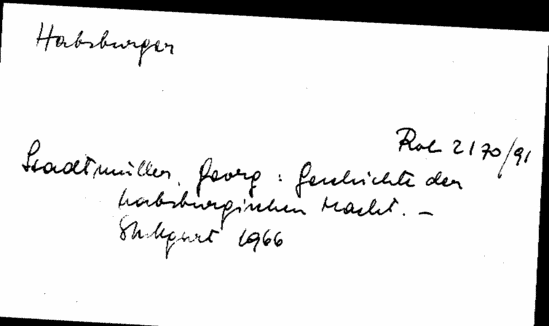 Habsburger
Rol 2170/91
Stadtmüller, Georg: Geschichte der
habsburgischen Macht. –
Stuttgart 1966